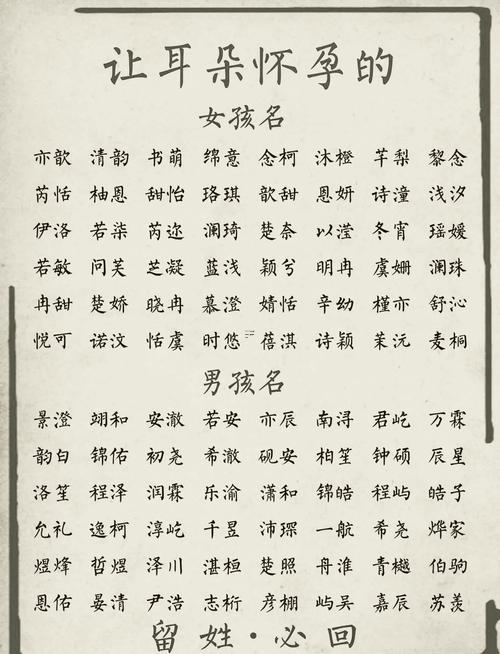 让耳朵怀孕的
女孩名
亦歆 清韵 书萌 绵意 念柯 沐橙 芊梨 黎念
芮恬 柚恩 甜怡 珞琪 歆甜 恩妍 诗潼 浅汐
伊洛 若柒 芮迩 澜琦 楚奈 以滢 冬宵 瑶媛
若敏 问芙 芝凝 蓝浅 颖兮 明冉 虞姗 澜珠
冉甜 楚娇 晓冉 慕澄 婧恬 辛幼 槿亦 舒沁
悦可 诺汶 恬虞 时悠 蓓淇 诗颖 茉沅 麦桐
男孩名
景澄 翊和 安澈 若安 亦辰 南浔 君屹 万霖
韵白 锦佑 初尧 希澈 砚安 柏笙 钟硕 辰星
洛笙 程泽 润霖 乐渝 潇和 锦皓 程屿 皓子
允礼 逸柯 淳屹 千昱 沛琛 一航 希尧 烨家
煜烽 哲煜 泽川 湛桓 楚照 舟淮 青樾 伯驹
恩佑 晏清 尹浩 志桁 彦棚 屿吴 嘉辰 苏羡
留姓·必回